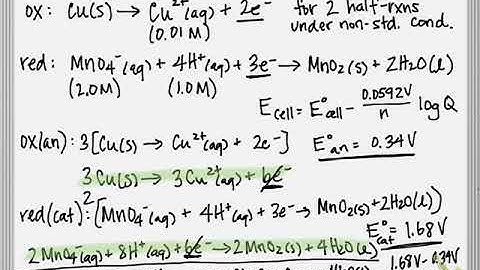 ox: Cu(s) → Cu²⁺(aq) + 2e⁻ for 2 half-rxns
(0.01M) under non-std. cond.
red: MnO₄⁻(aq) + 4H⁺(aq) + 3e⁻ → MnO₂(s) + 2H₂O(l)
(2.0M) (1.0M)
E cell = E° cell - 0.0592V/n log Q
ox(an): 3[Cu(s) → Cu²⁺(aq) + 2e⁻] E° an = 0.34V
3Cu(s) → 3Cu²⁺(aq) + 6e⁻
red(cat): 2[MnO₄⁻(aq) + 4H⁺(aq) + 3e⁻ → MnO₂(s) + 2H₂O(l)]
E° cat = 1.68V
2MnO₄⁻(aq) + 8H⁺(aq) + 6e⁻ → 2MnO₂(s) + 4H₂O(l)
1.68V - 0.34V